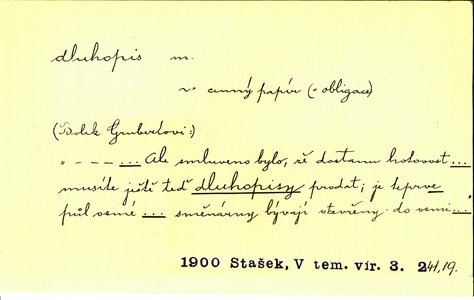 dluhopis m.
v. cenný papír (= obligace)
(Bolek Grubertovi:)
" – – – ... Ale smluveno bylo, že dostanu hotovost ...
musíte ještě teď dluhopisy prodat; je teprve
půl osmé ... směnárny bývají otevřeny do osmi ..."
1900 Stašek, V tem. vír. 3. 241, 19.